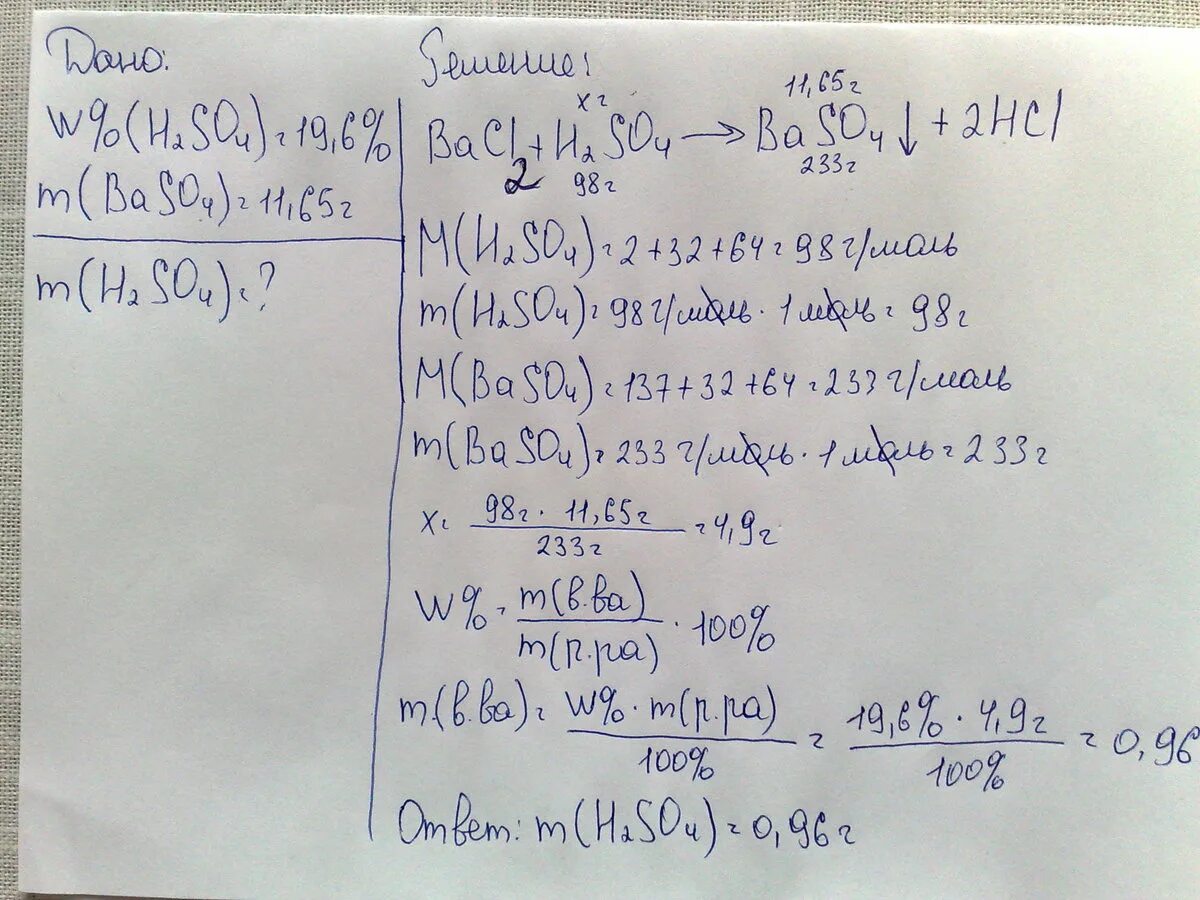 Дано:
W%(H₂SO₄)=19,6%
m(BaSO₄)=11,65г
m(H₂SO₄)=?
Решение:
x г
11,65г
BaCl₂+H₂SO₄→BaSO₄↓+2HCl
98г
233г
M(H₂SO₄)=2+32+64=98г/моль
m(H₂SO₄)=98г/моль·1моль=98г
M(BaSO₄)=137+32+64=233г/моль
m(BaSO₄)=233г/моль·1моль=233г
x=
98г·11,65г
233г
=4,9г
W%=
m(в.ва)
m(р.ра)
·100%
m(в.ва)=
W%·m(р.ра)
100%
=
19,6%·4,9г
100%
=0,96
Ответ: m(H₂SO₄)=0,96г